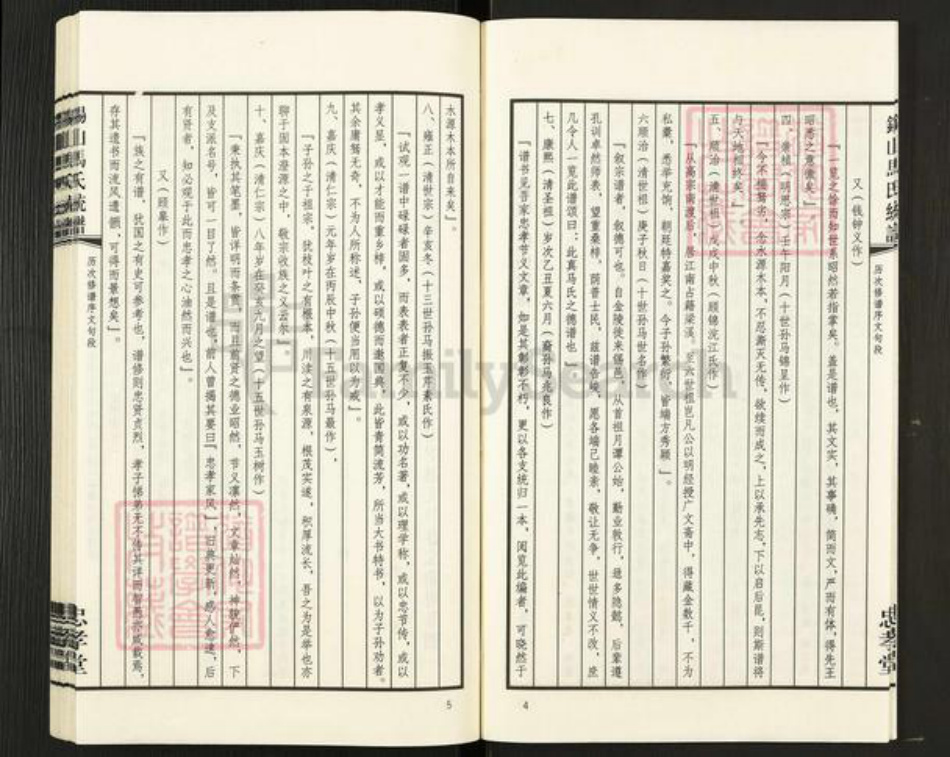 又（钱钟义作）
“一览之馀而知世系昭然若指掌矣。盖是谱也，其文实，其事确，简而文，严而有体，得先王
昭悉之意微矣”
四、崇桢（明思宗）壬午阳月（十世孙马锦呈作）
“今不揣驽劣，念水源木本，不忍澌灭无传，欲续而成之，上以承先志，下以启后昆，则斯谱将
与天地相终矣。”
五、顺治（清世祖）戊戌中秋（顾锦浣江氏作）
“从高宗南渡后，居江南占籍梁溪。至六世祖岂凡公以明经授广文斋中，得藏金数千，不为
私橐，悉举充饷，朝廷特嘉奖之。今子孙繁衍，皆端方秀颖”。
六顺治（清世祖）庚子秋日（十世孙马世名作）
“叙宗谱者，叙德可也。自金陵徙来锡邑，从首祖月潭公始，勤业敦行，迨多隐懿，后辈遵
孔训卓然师表，望重桑梓，荫普士民，兹谱告竣，愿各端己睦亲，敬让无争，世世情义不改，庶
几令人一览此谱颂曰：此真马氏之德谱也”
七、康熙（清圣祖）岁次乙丑夏六月（裔孙马兆良作）
“谱书见吾家忠孝节义文章，如是其彰彰不朽，更以各支统归一本，阅览此编者，可晓然于
锡山马氏统谱
历次修谱序文句段
忠孝堂
4
水源木本所自来矣”。
八、雍正（清世宗）辛亥冬（十三世孙马振玉芹素氏作）
“试观一谱中碌碌者固多，而表表者正复不少，或以功名著，或以理学称，或以忠节传，或以
孝义呈，或以才能而重乡梓，或以硕德而邀国典，此皆青简流芳，所当大书特书，以为子孙劝者。
其余庸驽无奇，不为人所称述，子孙便当用以为戒”。
九、嘉庆（清仁宗）元年岁在丙辰中秋（十五世孙马最作），
“子孙之于祖宗，犹枝叶之有根本，川渎之有泉源，根茂实遂，积厚流长，吾之为是举也亦
聊于固本澄源之中，敬宗收族之义云尔”
十、嘉庆（清仁宗）八年岁在癸亥九月之望（十五世孙马玉树作）
“秉执其笔墨，皆详明而条贯，而且前贤之德业昭然，节义凛然，文章灿然，神貌俨然，下
及支派名号，皆可一目了然。且是谱也，前人曾揭其要曰“忠孝家风”，旧典更新，感人愈速，后
有贤者，知必观于此而忠孝之心油然而兴也”。
又（顾皋作）
“族之有谱，犹国之有史可参考也，谱修则忠贤贞烈，孝子悌弟无不传其详而智愚亦咸载焉，
存其遗书而流风遗韻，可得而景想矣”。
锡山马氏统谱
历次修谱序文句段
忠孝堂
5
familysearch